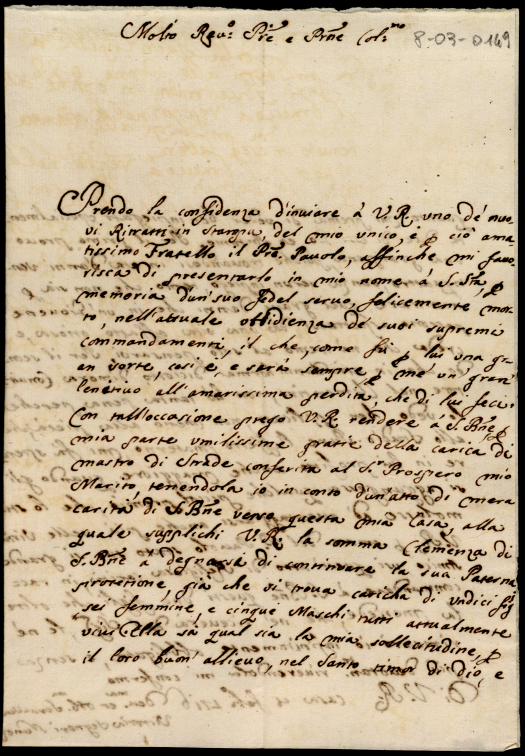 Molto Revo. Pre. e Prne Col.mo
8-03-D149
Prendo la confidenza d'inviare à V.R. uno de' nuo
vi Ritratti in Stampa, del mio unico, e p ciò ama
tissimo Fratello il Pre. Pauolo, affinche mi fauo
risca di presentarlo in mio nome à S. Stà, p
memoria d'un suo fedel servo, felicemente mor
to, nell'attuale obbidienza de suoi supremi
commandamenti, il che, come fù p lui una gr
an sorte, così è, e sarà sempre p me un gran
lenitivo all'amarissima perdita, che di lui feci.
Con tall'occasione prego V.R. rendere à S. Bne p
mia parte umilissime gratie della carica di
mastro di Strade conferita al Sr. Prospero mio
Marito tenendola io in conto d'un'atto di mera
carità di S. Bne verso questa mia Casa, alla
quale supplichi V.R. la somma Clemenza di
S. Bne à degnarsi di continuare la sua Paterna
protetione, già che si trova caricha di undici figl
sei femmine, e cinque Maschi tutti attualmente
vivi Ella sà qual sia la mia sollecitudine, p
il loro buon' allievo, nel Santo timor di Dio, e